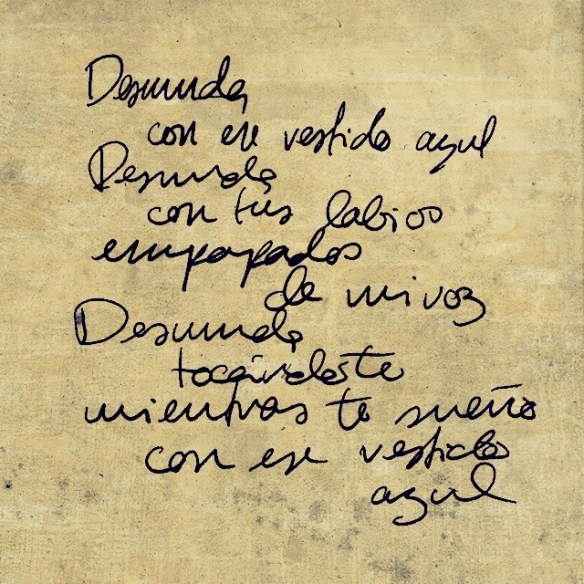 Desnuda,
con ese vestido azul
Desnuda
con tus labios
empapados
de mi voz
Desnuda
tocándote
mientras te sueño
con ese vestido
azul